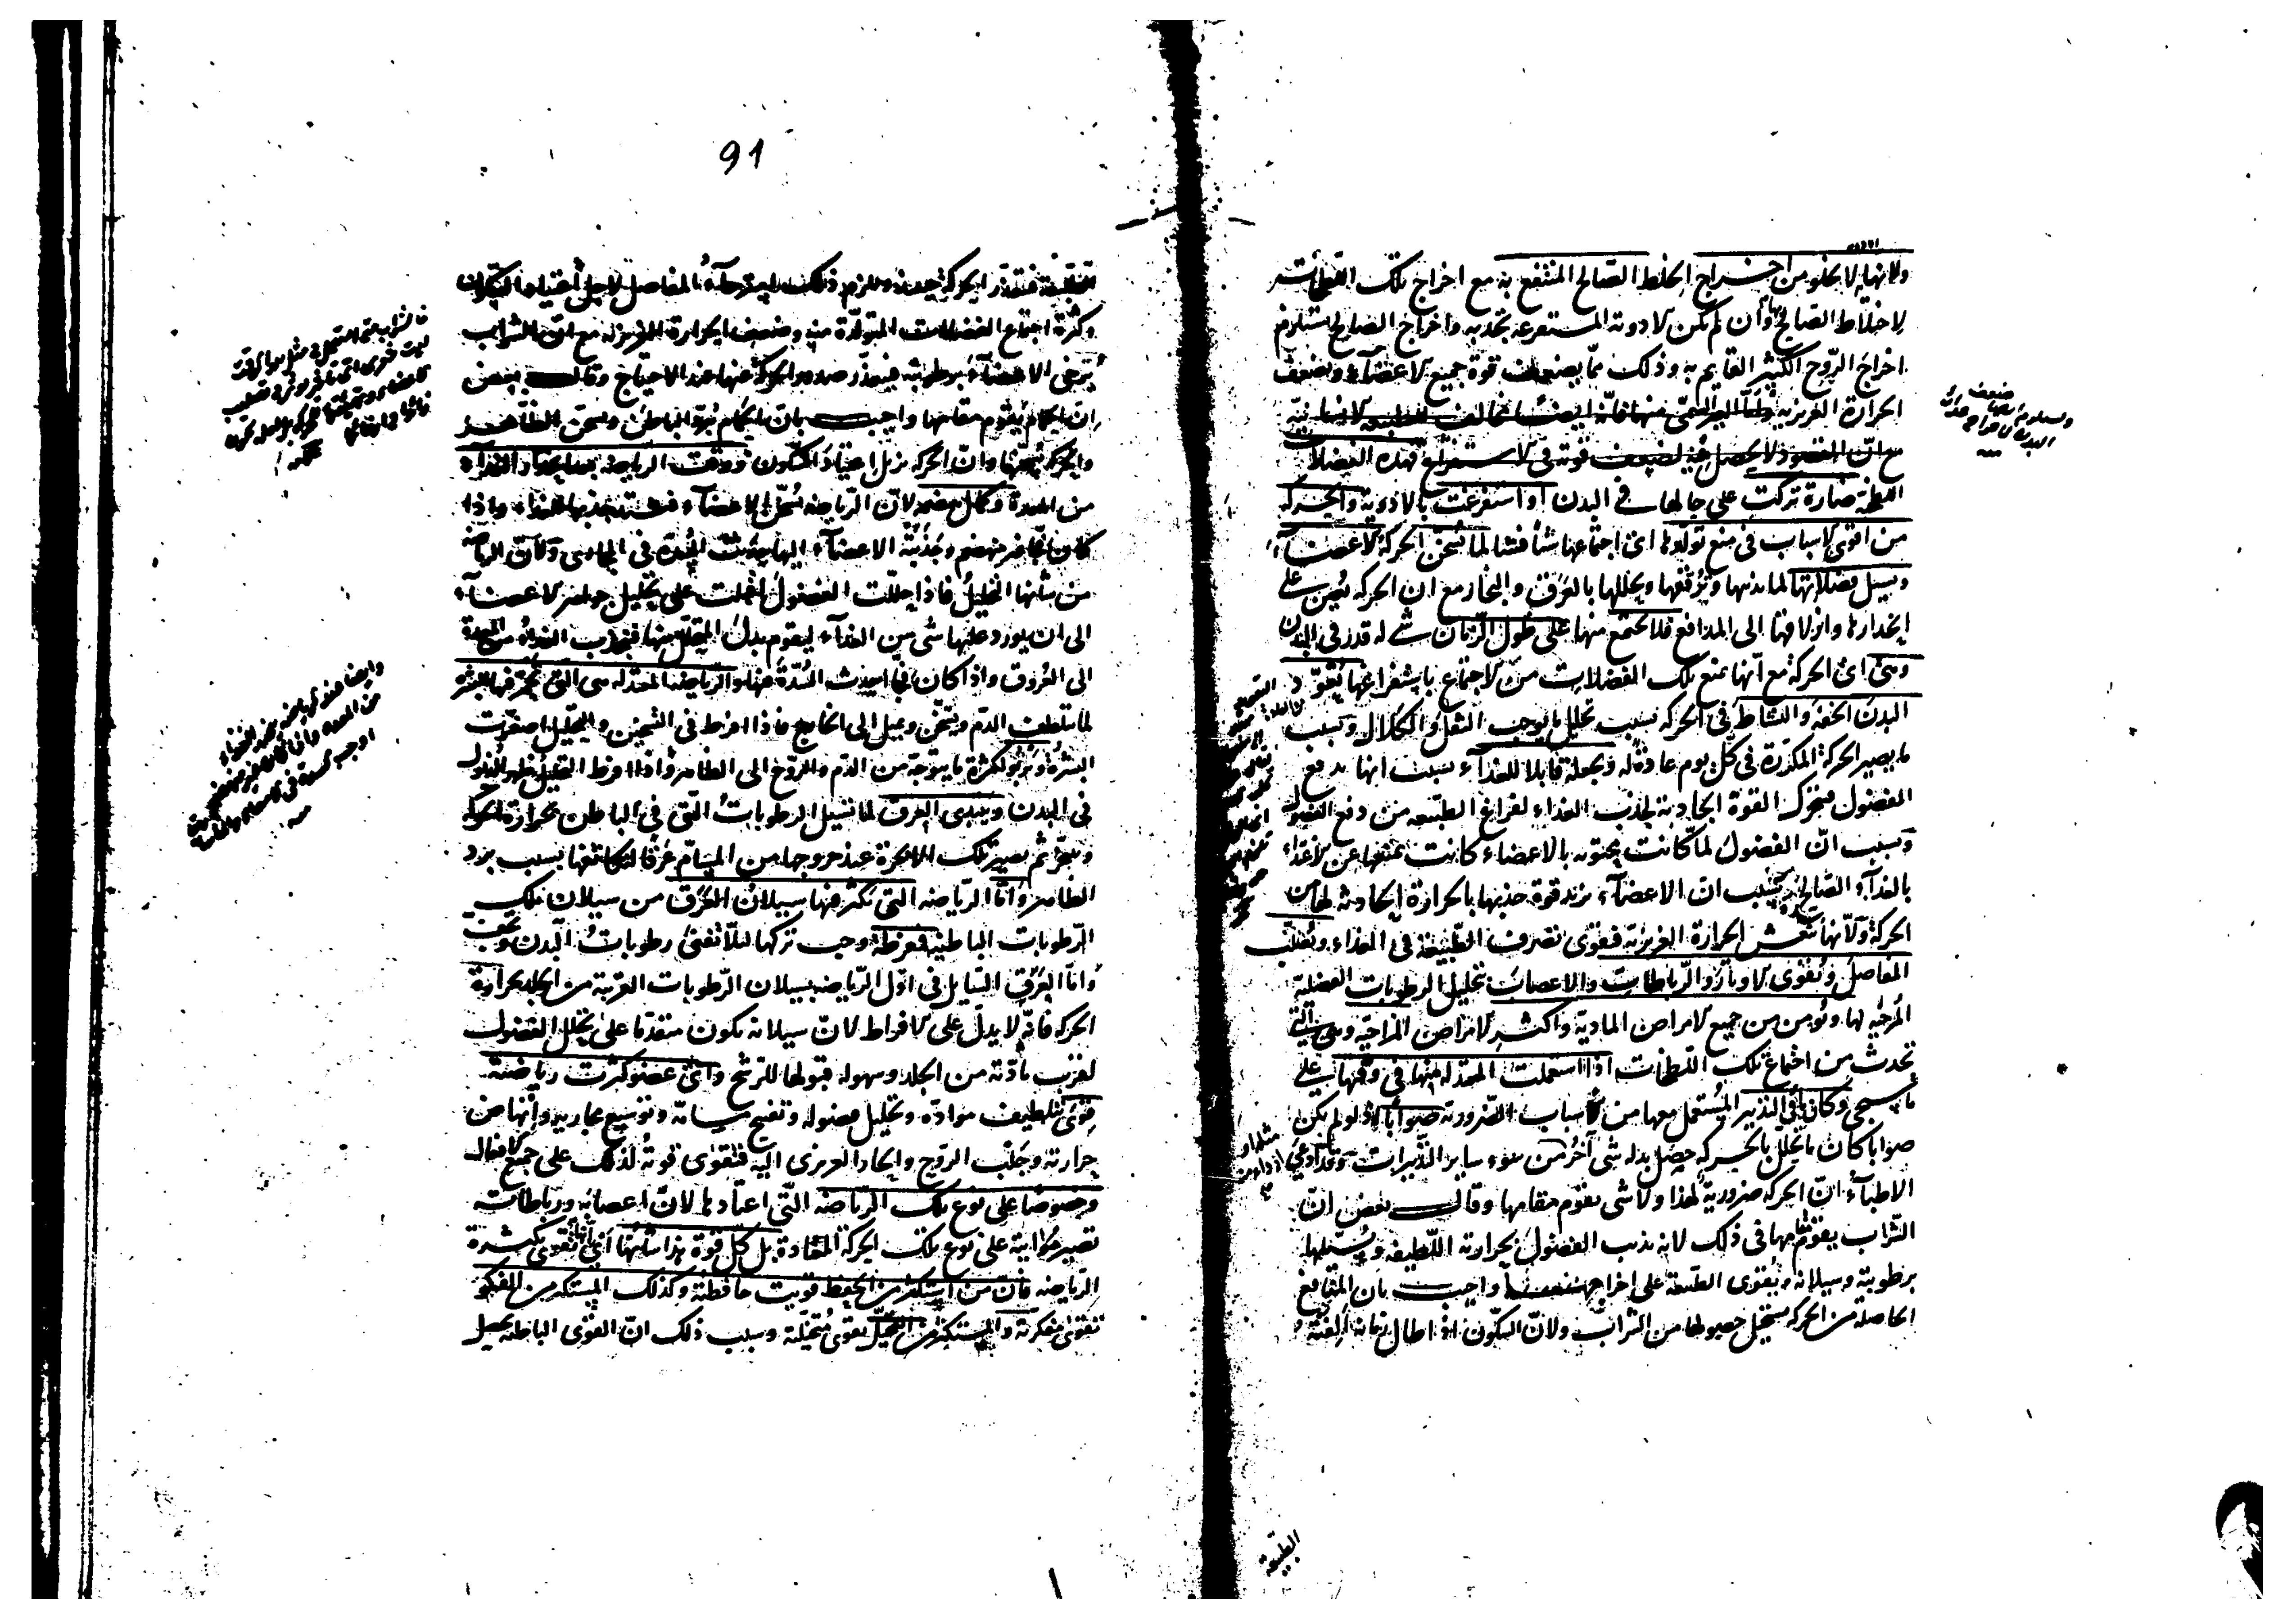 ولانها لا يخلو من اخراج الخلط الصالح المنتفع به مع اخراج تلك اللطخات
لاختلاط الصالح بها وان لم يكن لادوية المستفرغة تجذبه واخراج الصالح يستلزم
اخراج الروح الكثير القايم به وذلك مما يضعف قوة جميع الاعضاء ويضعف
الحرارة الغريزية واما الغير السمى منها فانه ايضا مخالف للطبيعة الانسانية
مع ان المقصود لا يحصل به لضعف قوته فى الاستفراغ فهذه الفضلات
اللطخية ضارة تركت على حالها فى البدن او استفرغت بالادوية والحركة
من اقوى الاسباب فى منع تولدها اى اجتماعها شيئا فشيئا لما تسخن الحركة الاعضاء
وتسيل فضلاتها لما تذيبها وترققها ويحللها بالعرق والبخار مع ان الحركة تعين على
انحدارها وازلاقها الى المدافع فلا يجتمع منها على طول الزمان شى له قدر فى البدن
وهى اى الحركة مع انها تمنع تلك الفضلات من الاجتماع باستفراغها تعود
البدن الخفة والنشاط فى الحركة بسبب تحليل ما يوجب الثقل والكلال وبسبب
ما يصير الحركة المتكررة فى كل يوم عادة له ويجعله قابلا للغذاء بسبب انها تدفع
الفضول فيتحرك القوة الجاذبة لجذب الغذاء لفراغ الطبيعة من دفع الفضول
وبسبب ان الفضول لما كانت محتوية بالاعضاء كانت تمنعها عن الاغتذاء
بالغذاء الصالح وبسبب ان الاعضاء تزيد قوة جذبها بالحرارة الحادثة لها من
الحركة ولانها تنعش الحرارة الغريزية فيقوى تصرف الطبيعة فى الغذاء وتصلب
المفاصل وتقوى الاوتار والرباطات والاعصاب بتحليل الرطوبات الفضلية
المرخية لها وتؤمن من جميع الامراض المادية واكثر الامراض المزاجية وهى التى
تحدث من اجتماع تلك اللطخات اذا استعملت المعتدلة منها فى وقتها على
ما سيجى وكان باقى التدبير المستعمل معها من الاسباب الضرورية صوابا اذ لو لم يكن
صوابا كان ما يتحلل بالحركة حصل بدله شى آخر من سوء ساير التدبيرات وقد ادعى
الاطباء ان الحركة ضرورية لهذا ولا شى يقوم مقامها وقال بعض ان
الشراب يقوم مقامها فى ذلك لانه يذيب الفضول بحرارته اللطيفة ويسيلها
برطوبته وسيلانه ويقوى الطبيعة على اخراجها واجيب بان المنافع
الحاصلة من الحركة يستحيل حصولها من الشراب ولان السكون اذا طال زمانه الفته
الطبيعة
91
الطبيعة فتتعذر الحركة حينئذ ويلزم ذلك استرخاء المفاصل لاجل اعتياد السكون
وكثرة اجتماع الفضلات المتولدة منه وضعف الحرارة الغريزية مع ان الشراب
يرخى الاعضاء برطوبته فيتعذر صدور الحركة عنها عند الاحتياج وقال بعض
ان الحمام يقوم مقامها واجيب بان الحمام يبرد الباطن ويسخن الظاهر
والحركة تسخنها وان الحركة تزيل اعتياد السكون ووقت الرياضة بعد انحدار الغذاء
من المعدة وكمال هضمه لان الرياضة تسخن الاعضاء فيشتد جذبها للغذاء واذا
كان غير منهضم وجذبته الاعضاء اليها حدثت السدة فى المجارى ولان الرياضة
من شانها التحليل فاذا حللت الفضول اقبلت على تحليل جواهر الاعضاء
الى ان يورد عليها شى من الغذاء ليقوم بدل المتحلل منها فتجذب الغذاء من المعدة
الى العروق واذا كان فجا احدث السدة فيها والرياضة المعتدلة هى التى تحمر فيها البشرة
لما يتلطف الدم ويتسخن ويميل الى الخارج فاذا افرط فى التسخين والتحليل اصفرت
البشرة وتربو لكثرة ما يتوجه من الدم والروح الى الظاهر واذا افرط التحليل ظهر الذبول
فى البدن ويبتدى العرق لما تسيل الرطوبات التى فى الباطن بحرارة الحركة
وتبخر ثم تصير تلك الابخرة عند خروجها من المسام عرقا لتكاثفها بسبب برد
الظاهر واما الرياضة التى يكثر فيها سيلان العرق من سيلان تلك
الرطوبات الباطنية فمفرطة وجب تركها لئلا تفنى رطوبات البدن ويجف
واما العرق السايل فى اول الرياضة بسيلان الرطوبات القريبة من الجلد بحرارة
الحركة فانه لا يدل على الافراط لان سيلانه يكون متقدما على تحلل الفضول
لقرب مادته من الجلد وسهولة قبولها للترشح واى عضو كثرت رياضته
قوى بتلطيف مواده وتحليل فضوله وتفتيح مسامه وتوسيع مجاريه وانهاض
حرارته وجلب الروح والحار الغريزى اليه فتقوى قوته لذلك على جميع الافعال
وخصوصا على نوع تلك الرياضة التى اعتادها لان اعصابه ورباطاته
تصير مواتية على نوع تلك الحركة المعتادة بل كل قوة هذا شانها اى انها تقوى بكثرة
الرياضة فان من استكثر من الحفظ قويت حافظته وكذلك المستكثر من الفكر
تقوى مفكرته والمستكثر من التخيل يقوى متخيلته وسبب ذلك ان القوى الباطنة يحصل